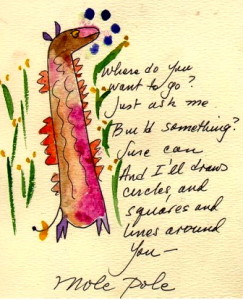 Where do you
want to go?
Just ask me
Build something?
Sure can
And I'll draw
circles and
squares and
lines around
you —
Mole Pole